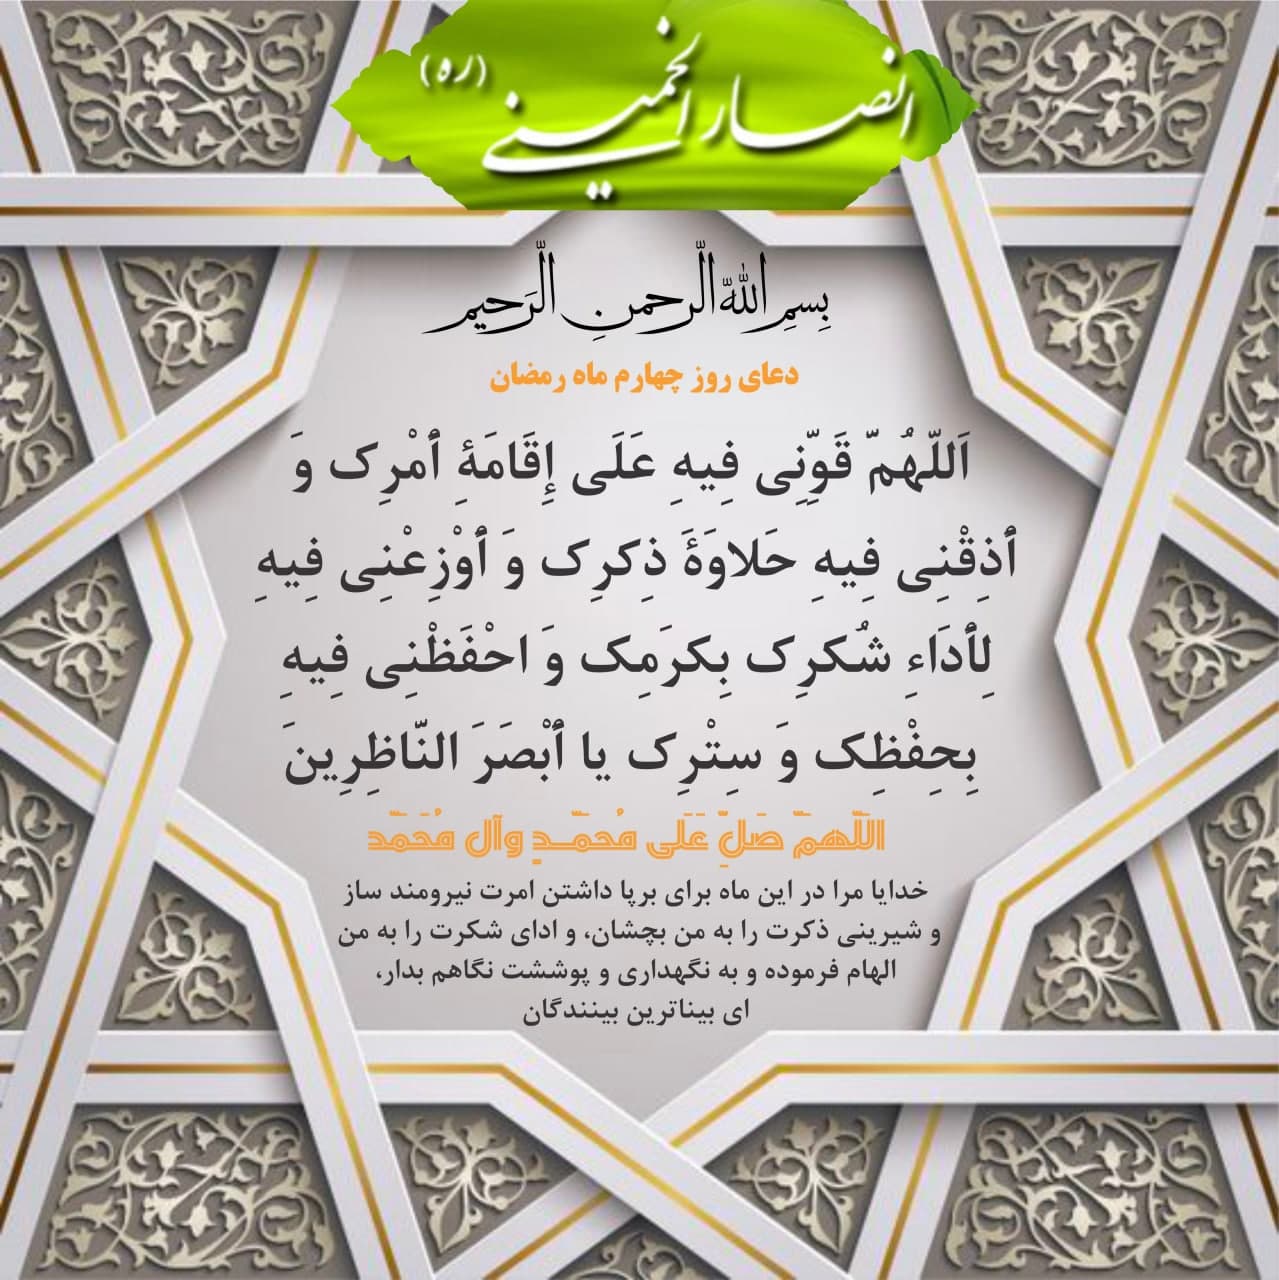 انصار الخمینی (ره)
بِسمِ اللّٰهِ الَّرحمنِ الَّرَحیم
دعای روز چهارم ماه رمضان
اَللّهُمّ قَوِّنِی فِیهِ عَلَی إِقَامَهِٔ أمْرِک وَ
أذِقْنِی فِیهِ حَلاوَهَٔ ذِکرِک وَ أوْزِعْنِی فِیهِ
لِأدَاءِ شُکرِک بِکرَمِک وَ احْفَظْنِی فِیهِ
بِحِفْظِک وَ سِتْرِک یا أبْصَرَ النّاظِرِینَ
اللَّهمَّ صَلِّ عَلَی مُحَمَّــدٍ وآل مُحَمَّد
خدایا مرا در این ماه برای برپا داشتن امرت نیرومند ساز
و شیرینی ذکرت را به من بچشان، و ادای شکرت را به من
الهام فرموده و به نگهداری و پوششت نگاهم بدار،
ای بیناترین بینندگان